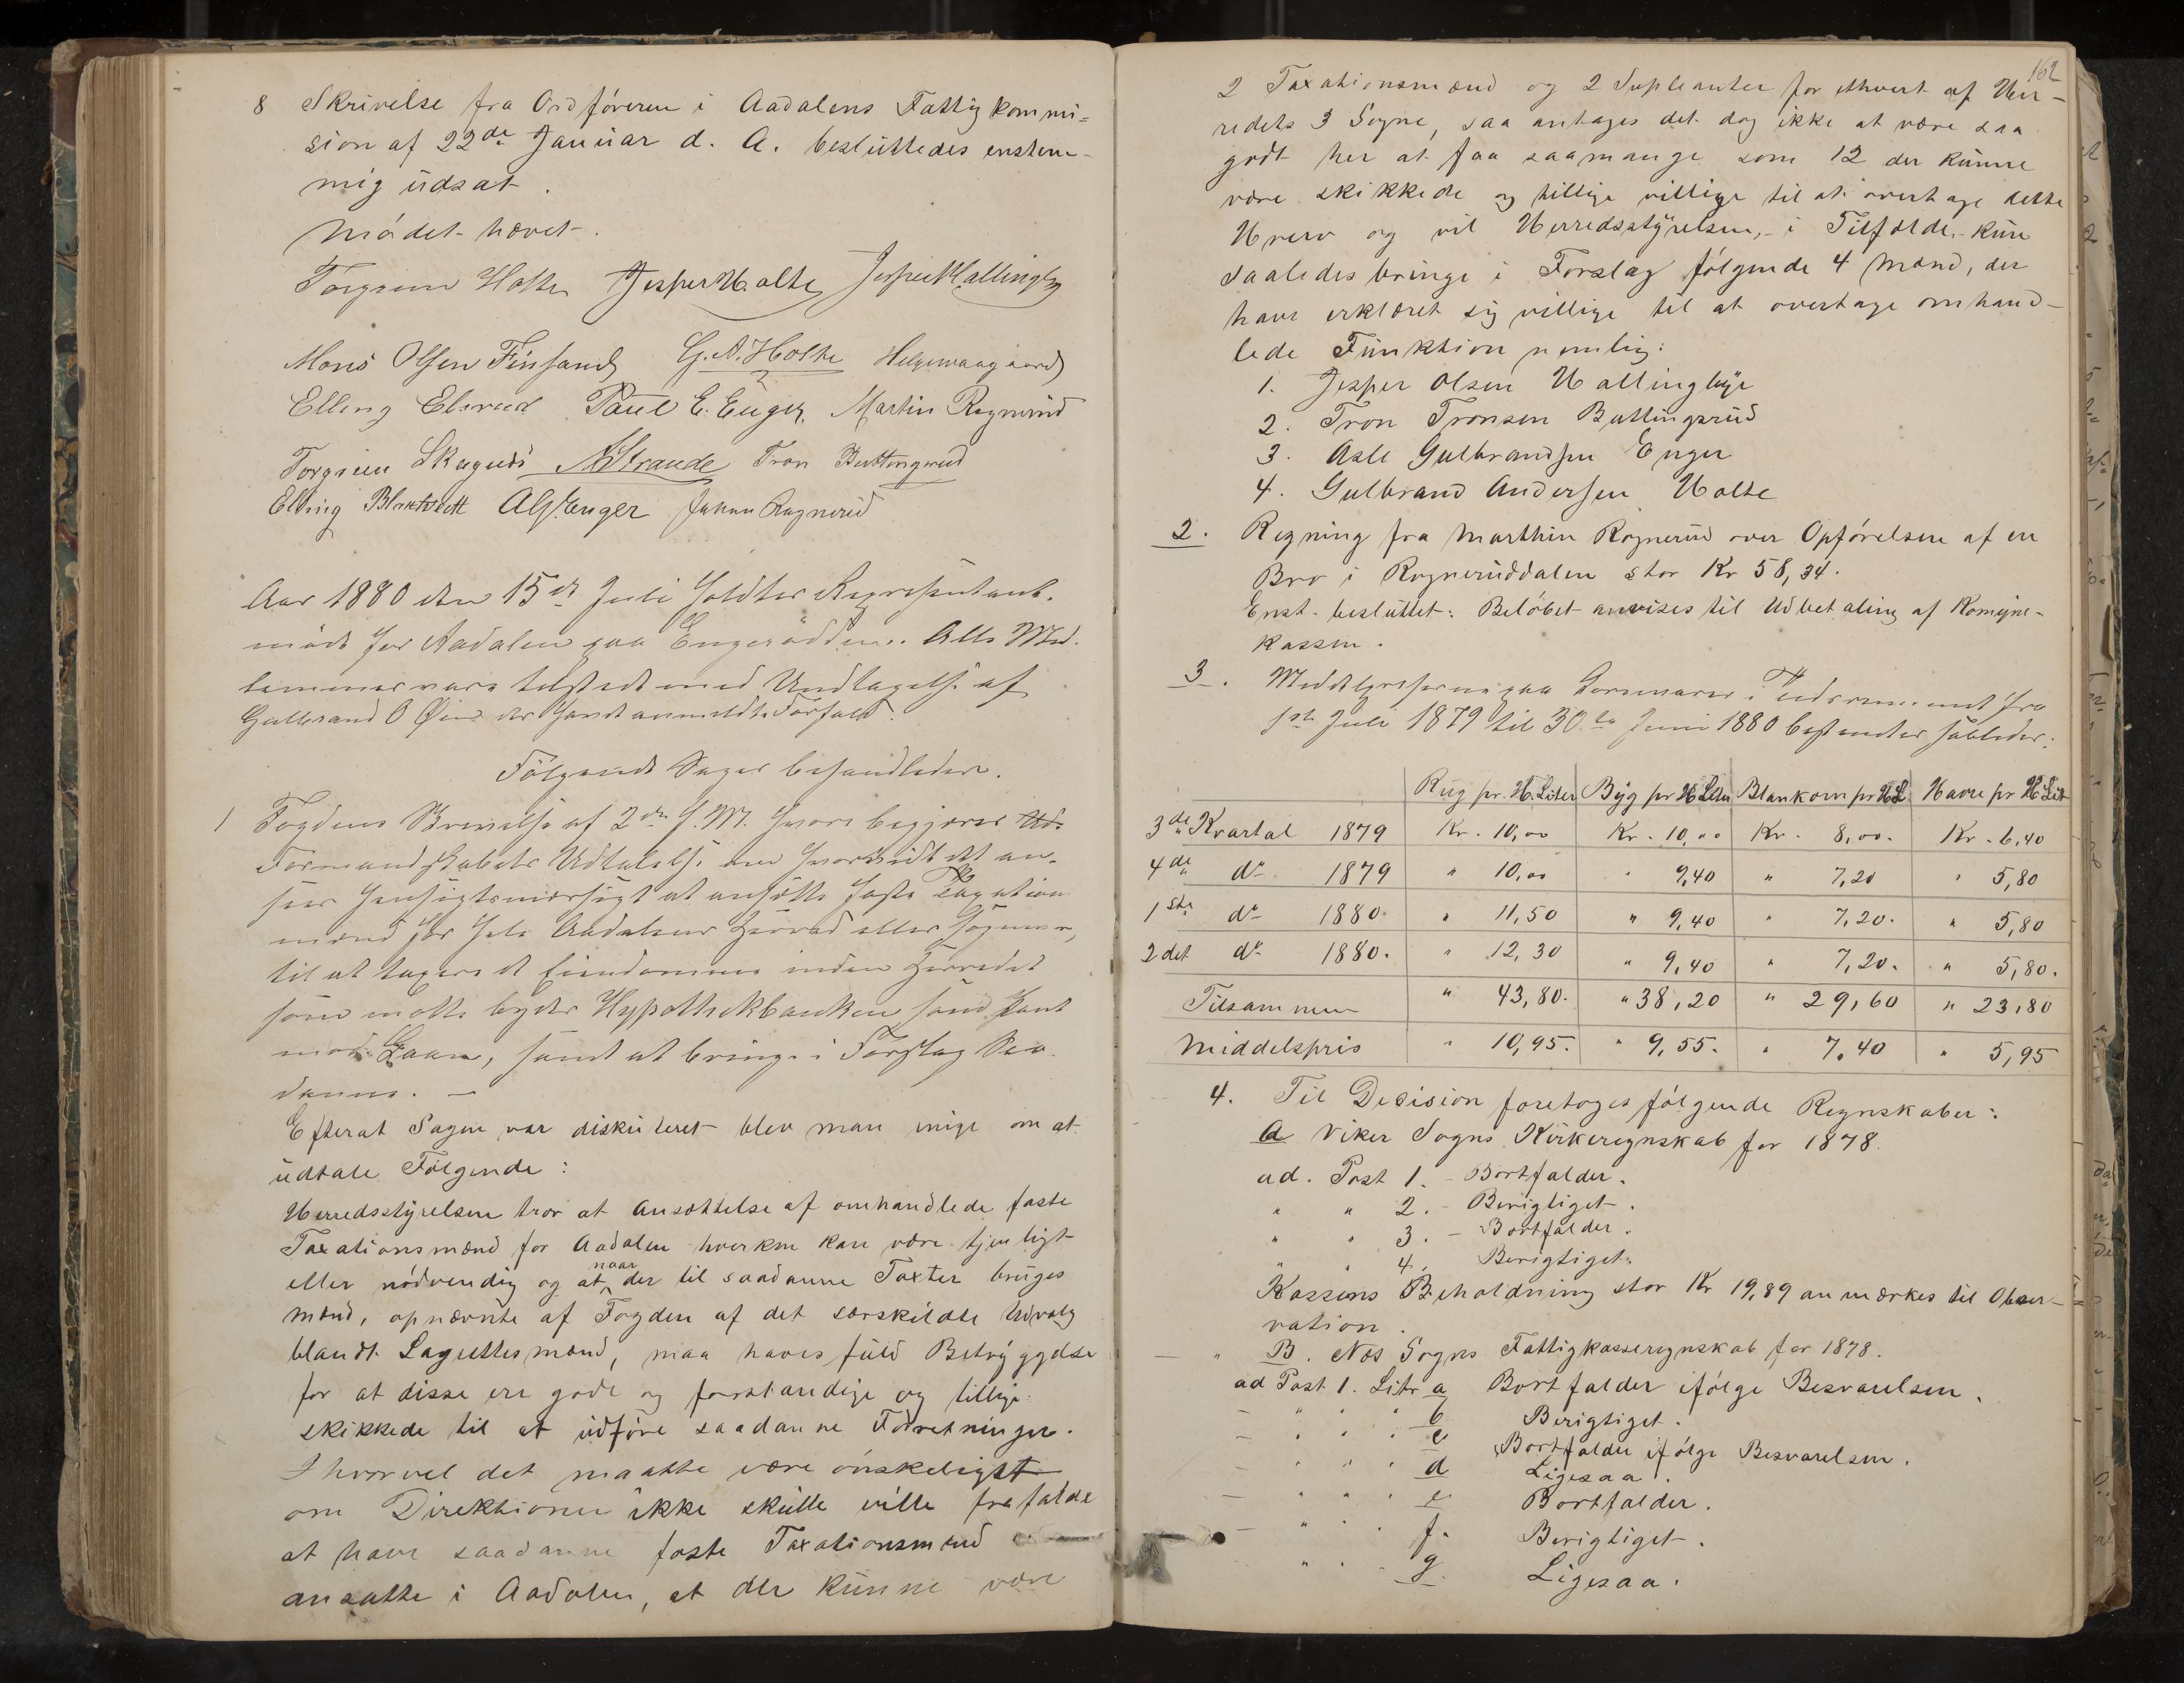 8 Skrivelse fra Ordföreren i Aadalens Fattigkommi=
sion af 22de Januar d. A. besluttedes enstem-
mig udsat.
Mödet hævet.
Torgrim Holte Jesper Holte Jesper Hallingby
Mons Olsen Finsand G. A. Holte Helgewaagaard
Elling Elsrud Paul E. Enger, Martin Rognerud
Torgrim Skagnæs Strande Tron Buttingsrud
Elling Blaktvedt A Gl. Enger Johan Rognerud
Aar 1880 den 15de Juli holdtes Repræsentant-
möde for Aadalen paa Engerodden. Alle Med-
lemmer vare tilstede med Undtagelse af
Gulbrand O Öien der havde anmeldt Forfald.
Fölgende Sager behandledes.
1 Fogdens Skrivelse af 2den f. M. hvori begjæres
Formandskabets Udtalelse om hvorvidt det an-
sees hensigtsmæssigt at ansætte faste Taxations
mænd for hele Aadalens Herred eller Sognene,
til at taxere de Eiendomme inden Herredet
som maatte bydes Hypothekbanken som Pant
mod Laan, samt at bringe i Forslag Saa
danne. —
Efterat Sagen var diskuteret blev man enige om at
udtale Følgende:
Herredsstyrelsen tror at Ansættelse af omhandlede faste
Taxationsmænd for Aadalen hverken kan være tjenligt
eller nödvendig og at naar der til saadanne Taxter bruges
Mænd, opnævnte af Fogden af det særskildte Udvalg
blandt Lagrettesmænd, maa haves fuld Betryggelse
for at disse ere gode og forstandige og tillige
skikkede til at udföre saadanne Forretninger.
Ihvorvel det maatte være önskeligst
om Direktionen ikke skulle ville frafalde
at have saadanne faste Taxationsmænd
ansatte i Aadalen, at der kunne være
162
2 Taxationsmænd og 2 Supleanter for ethvert af Her-
redets 3 Sogne, saa antages det dog ikke at være saa
godt her at faa saamange som 12 der kunne
være skikkede og tillige villige til at overtage dette
Hverv og vil Herredsstyrelsen,- i Tilfælde,- kun
saaledes bringe i Forslag fölgende 4 Mænd, der
have erklæret sig villige til at overtage omhand-
lede Funktion nemlig:
1. Jesper Olsen Hallingbye
2. Tron Tronsen Buttingsrud
3. Asle Gulbrandsen Enger
4. Gulbrand Andersen Holte
2. Regning fra Marthin Rognerud over Opförelsen af en
Bro i Rogneruddalen stor Kr 58,34.
Enst. besluttet: Belöbet anvises til Udbetaling af Komyne-
kassen.
3. Middelpriserne paa Kornvarer i Tidsrummet fra
1ste Juli 1879 til 30te Juni 1880 bestemtes saaledes:
Rug pr. H.Liter Byg pr H Liter Blankorn pr H L Havre pr H Lit
3de Kvartal 1879 Kr. 10,00 Kr. 10,00 Kr. 8,00. Kr. 6,40
4de do 1879 " 10,00 " 9,40 " 7,20 " 5,80
1ste do 1880. " 11,50 " 9,40 " 7,20. " 5,80
2det do 1880. " 12,30 " 9,40 " 7,20. " 5,80.
Tilsammen " 43,80. " 38,20 " 29,60 " 23,80
Middelspris " 10,95. " 9,55. " 7,40 " 5,95
4. Til Decision foretoges fölgende Regnskaber:
A Viker Sogns Kirkeregnskab for 1878.
ad. Post 1. - Bortfalder.
" " 2. - Berigtiget.
" " 3. - Bortfalder.
" " 4. Berigtiget.
Kassens Beholdning stor Kr 19,89 anmærkes til Obser-
vation.
" B. Næs Sogns Fattigkasseregnskab for 1878.
ad Post 1. Litr a Bortfalder ifölge Besvarelsen.
— " " " b Berigtiget.
— " " " c Bortfalder ifölge Besvarelsen.
— " " " d Ligesaa.
— " " " e Bortfalder.
— " " " f. Berigtiget.
" " g. Ligesaa.